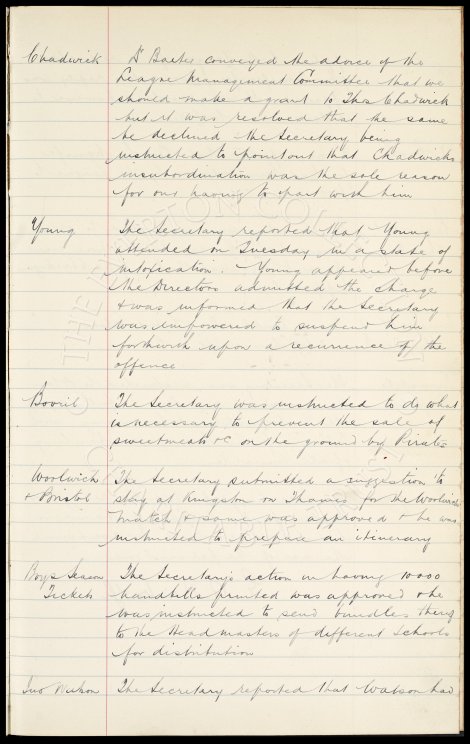 Chadwick Dr Baxter conveyed the advice of the
League Management Committee that we
should make a grant to Thos Chadwick
but it was resolved that the same
be declined the Secretary being
instructed to point out that Chadwicks
insubordination was the sole reason
for our having to part with him
Young The Secretary reported that Young
attended on Tuesday in a state of
intoxication. Young appeared before
the Directors admitted the charge
& was informed that the Secretary
was empowered to suspend him
forthwith upon a recurrence of the
offence
Bovril The Secretary was instructed to do what
is necessary to prevent the sale of
sweetmeats &c on the ground by Pirates
Woolwich The Secretary submitted a suggestion to
& Bristol stay at Kingston on Thames for the Woolwich
Match & same was approved & he was
instructed to prepare an itinerary
Boys Season The Secretary's action in having 10000
Tickets handbills printed was approved & he
was instructed to send bundles
to the Head masters of different Schools
for distribution
Jno The Secretary reported that Watson had